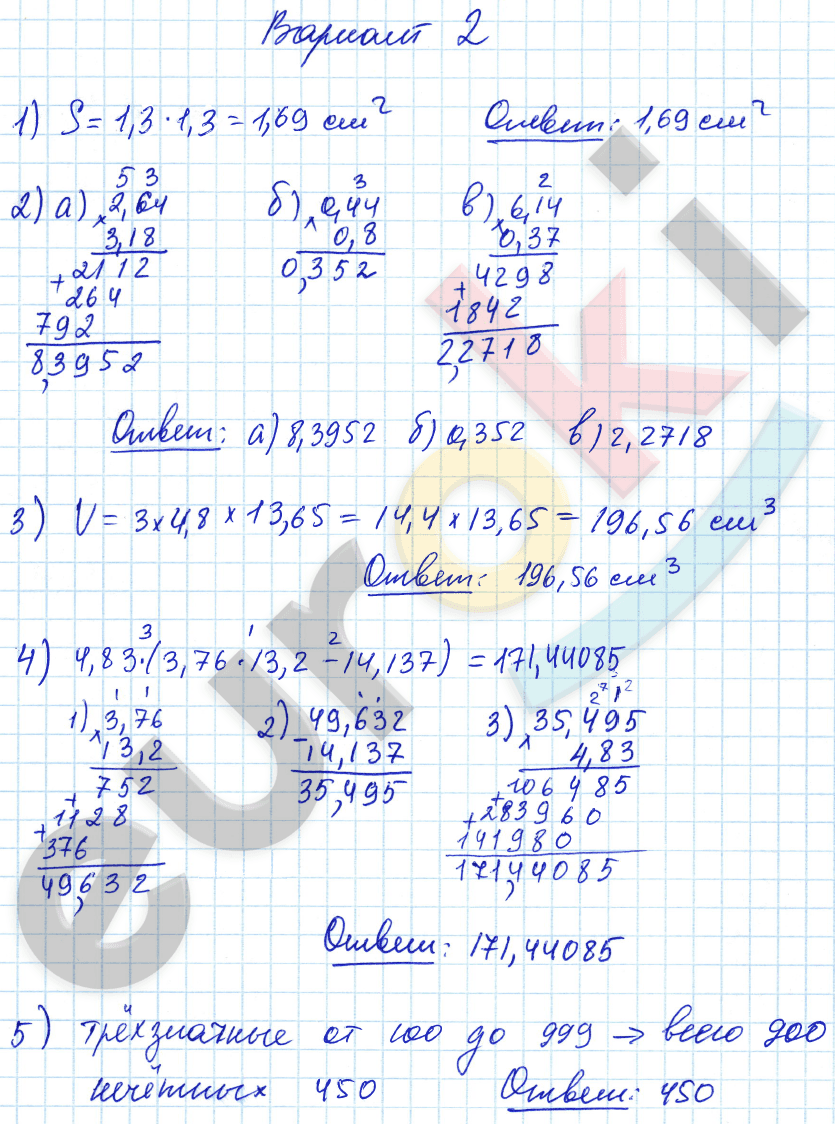 Вариант 2
1) S = 1,3 · 1,3 = 1,69 см² Ответ: 1,69 см²
5 3 3 2
2) а) × 2,64 б) × 0,44 в) × 6,14
3,18 0,8 0,37
+ 2112 0,352 + 4298
264 1842
792 2,2718
8,3952
Ответ: а) 8,3952 б) 0,352 в) 2,2718
3) V = 3 × 4,8 × 13,65 = 14,4 × 13,65 = 196,56 см³
Ответ: 196,56 см³
3 1 2
4) 4,83 · (3,76 · 13,2 – 14,137) = 171,44085
1) × 3,76 2) – 49,632 3) × 35,495
13,2 14,137 4,83
+ 752 35,495 + 106485
+ 1128 + 283960
376 141980
49,632 171,44085
Ответ: 171,44085
5) трёхзначные от 100 до 999 → всего 900
нечётных 450 Ответ: 450
euroki